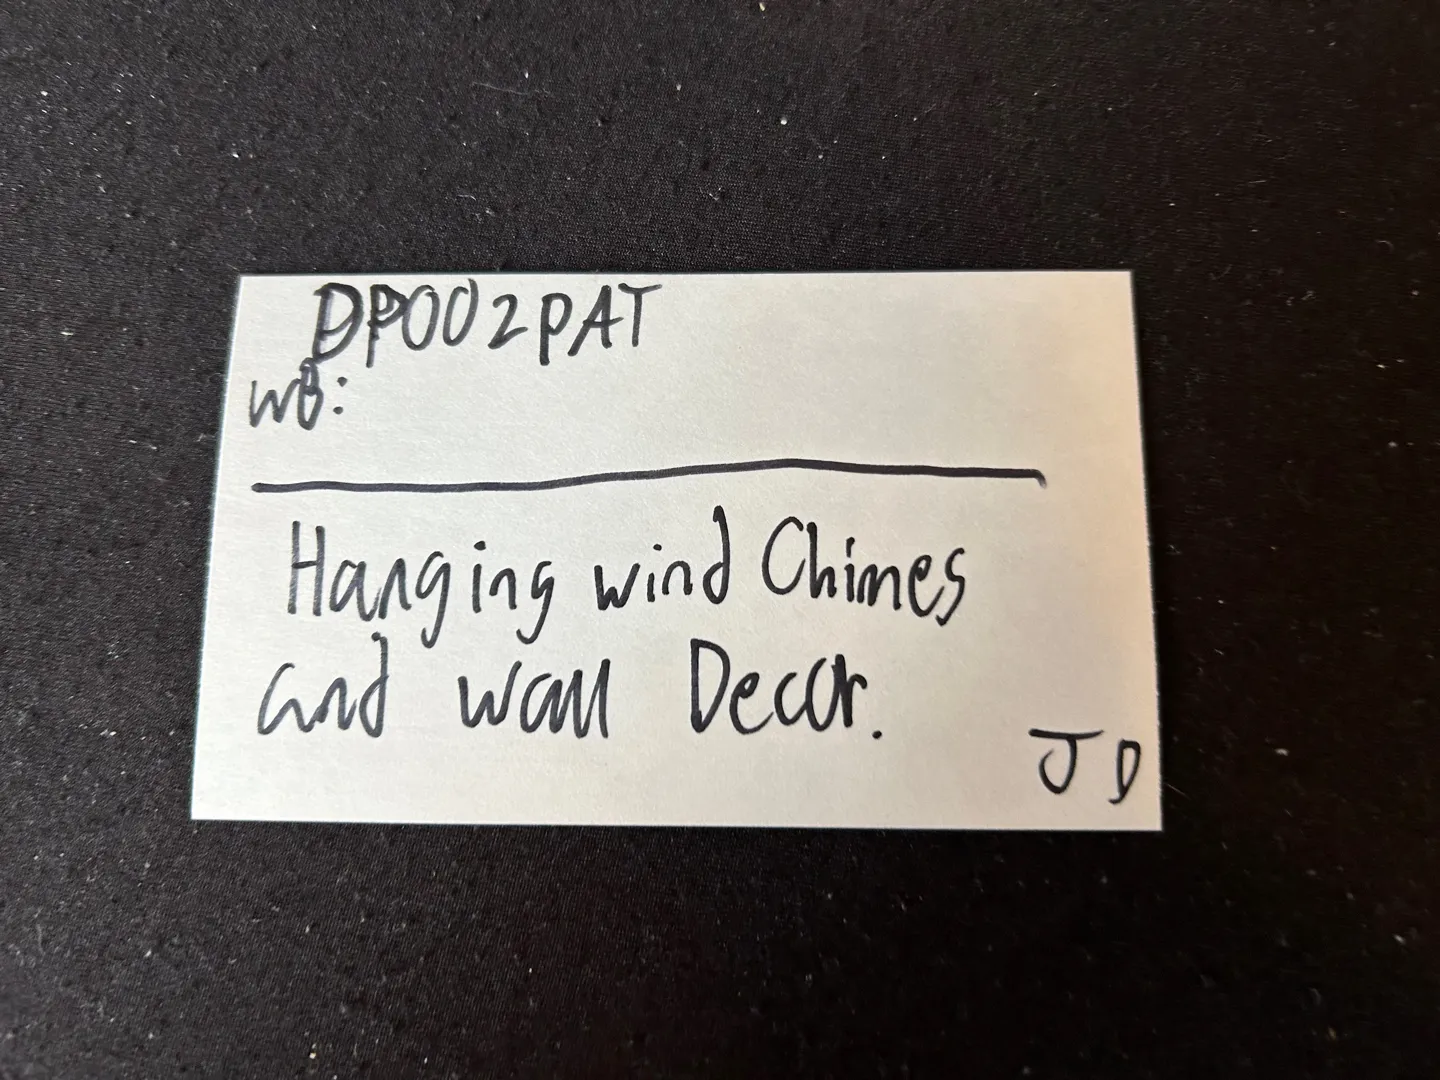 DP002PAT
WB:
Hanging wind Chimes
and wall Decor.
JD